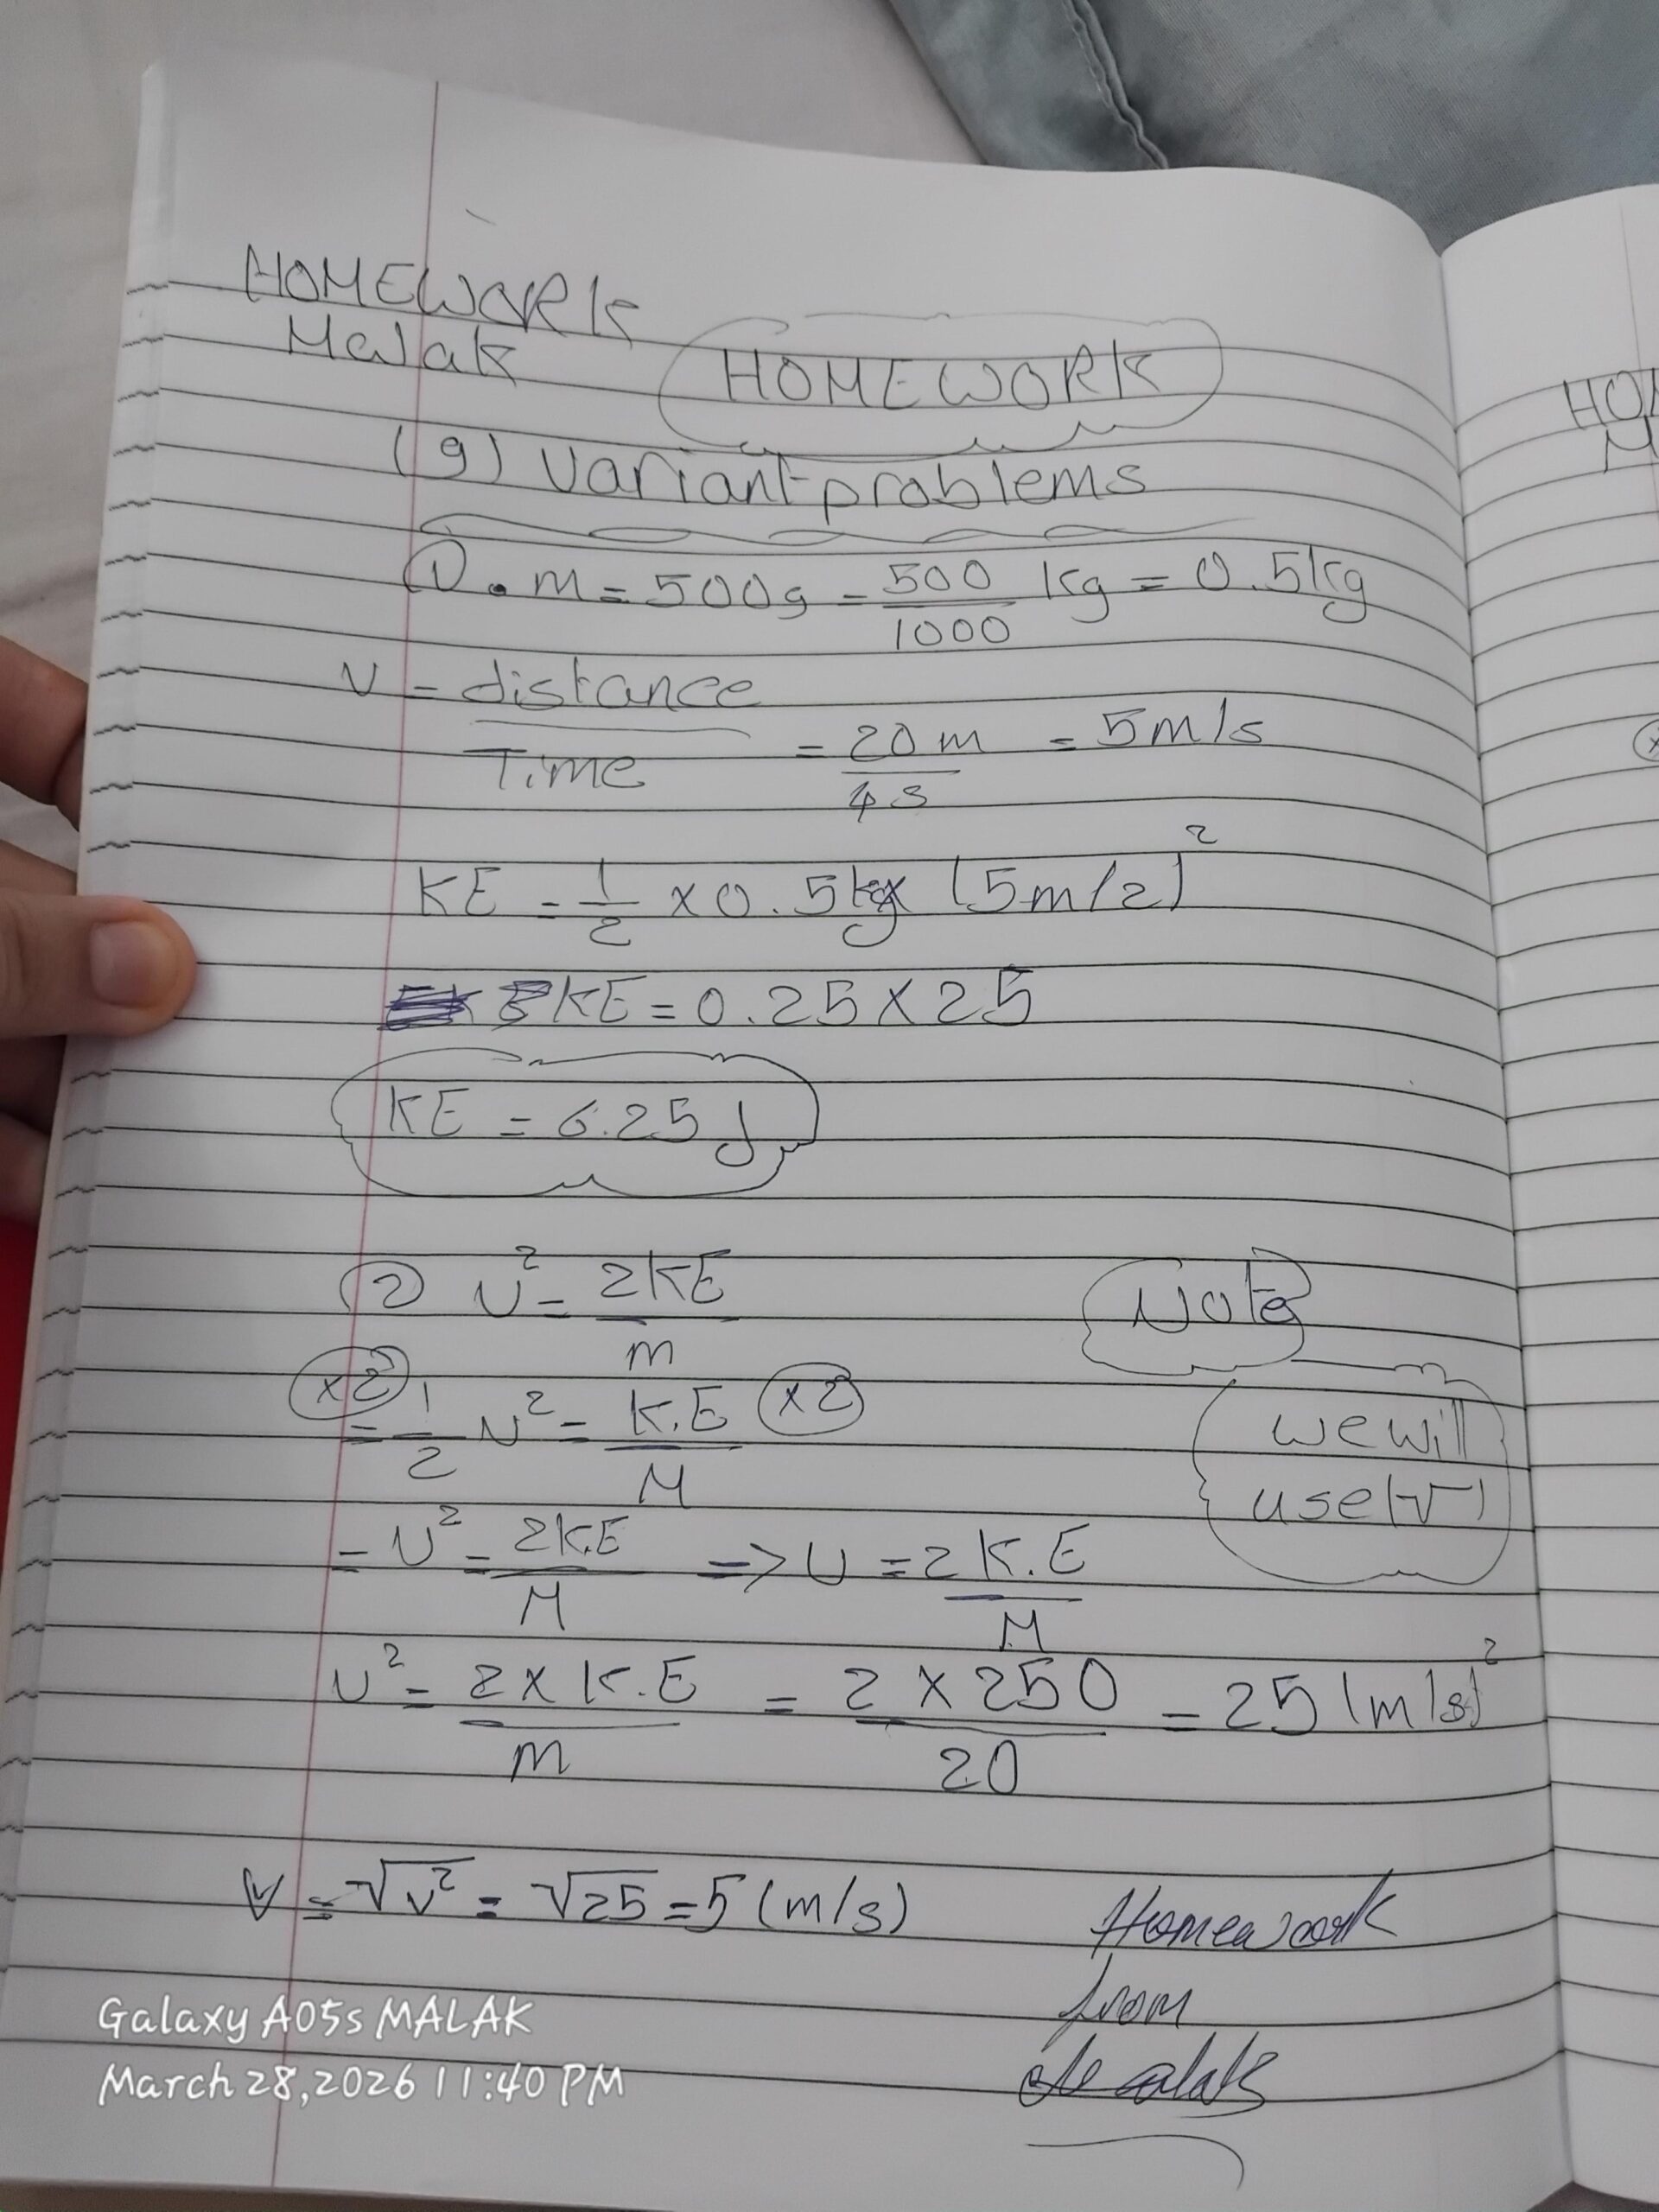 HOMEWORK
Malak
HOMEWORK
(9) Variant problems
① . m = 500g = 500/1000 Kg = 0.5kg
V = distance/Time = 20m/4s = 5m/s
KE = 1/2 × 0.5kg × (5m/2)²
KE = 0.25 × 25
KE = 6.25 J
② V² = 2KE/m
Note
(×2) = 1/2 V² = K.E/M (×2)
we will
use (√)
= V² = 2K.E/M => V = 2K.E/M
V² = 2 × K.E/m = 2 × 250/20 = 25 (m/s)²
V = √V² = √25 = 5 (m/s)
Homework
from
Malak
Galaxy A05s MALAK
March 28, 2026 11:40 PM
HO
M